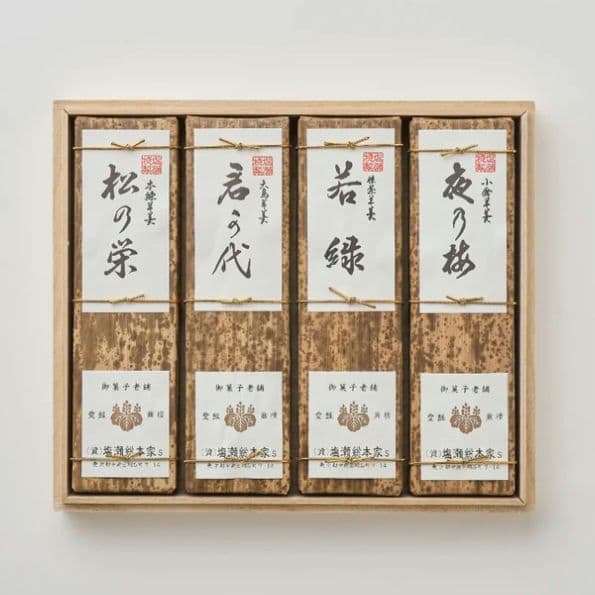 松の栄
本煉羊羹
君が代
大島羊羹
若緑
抹茶羊羹
夜の梅
小倉羊羹
御菓子老舗
登録 商標
(資)塩瀬総本家S
御菓子老舗
登録 商標
(資)塩瀬総本家S
御菓子老舗
登録 商標
(資)塩瀬総本家S
御菓子老舗
登録 商標
(資)塩瀬総本家S